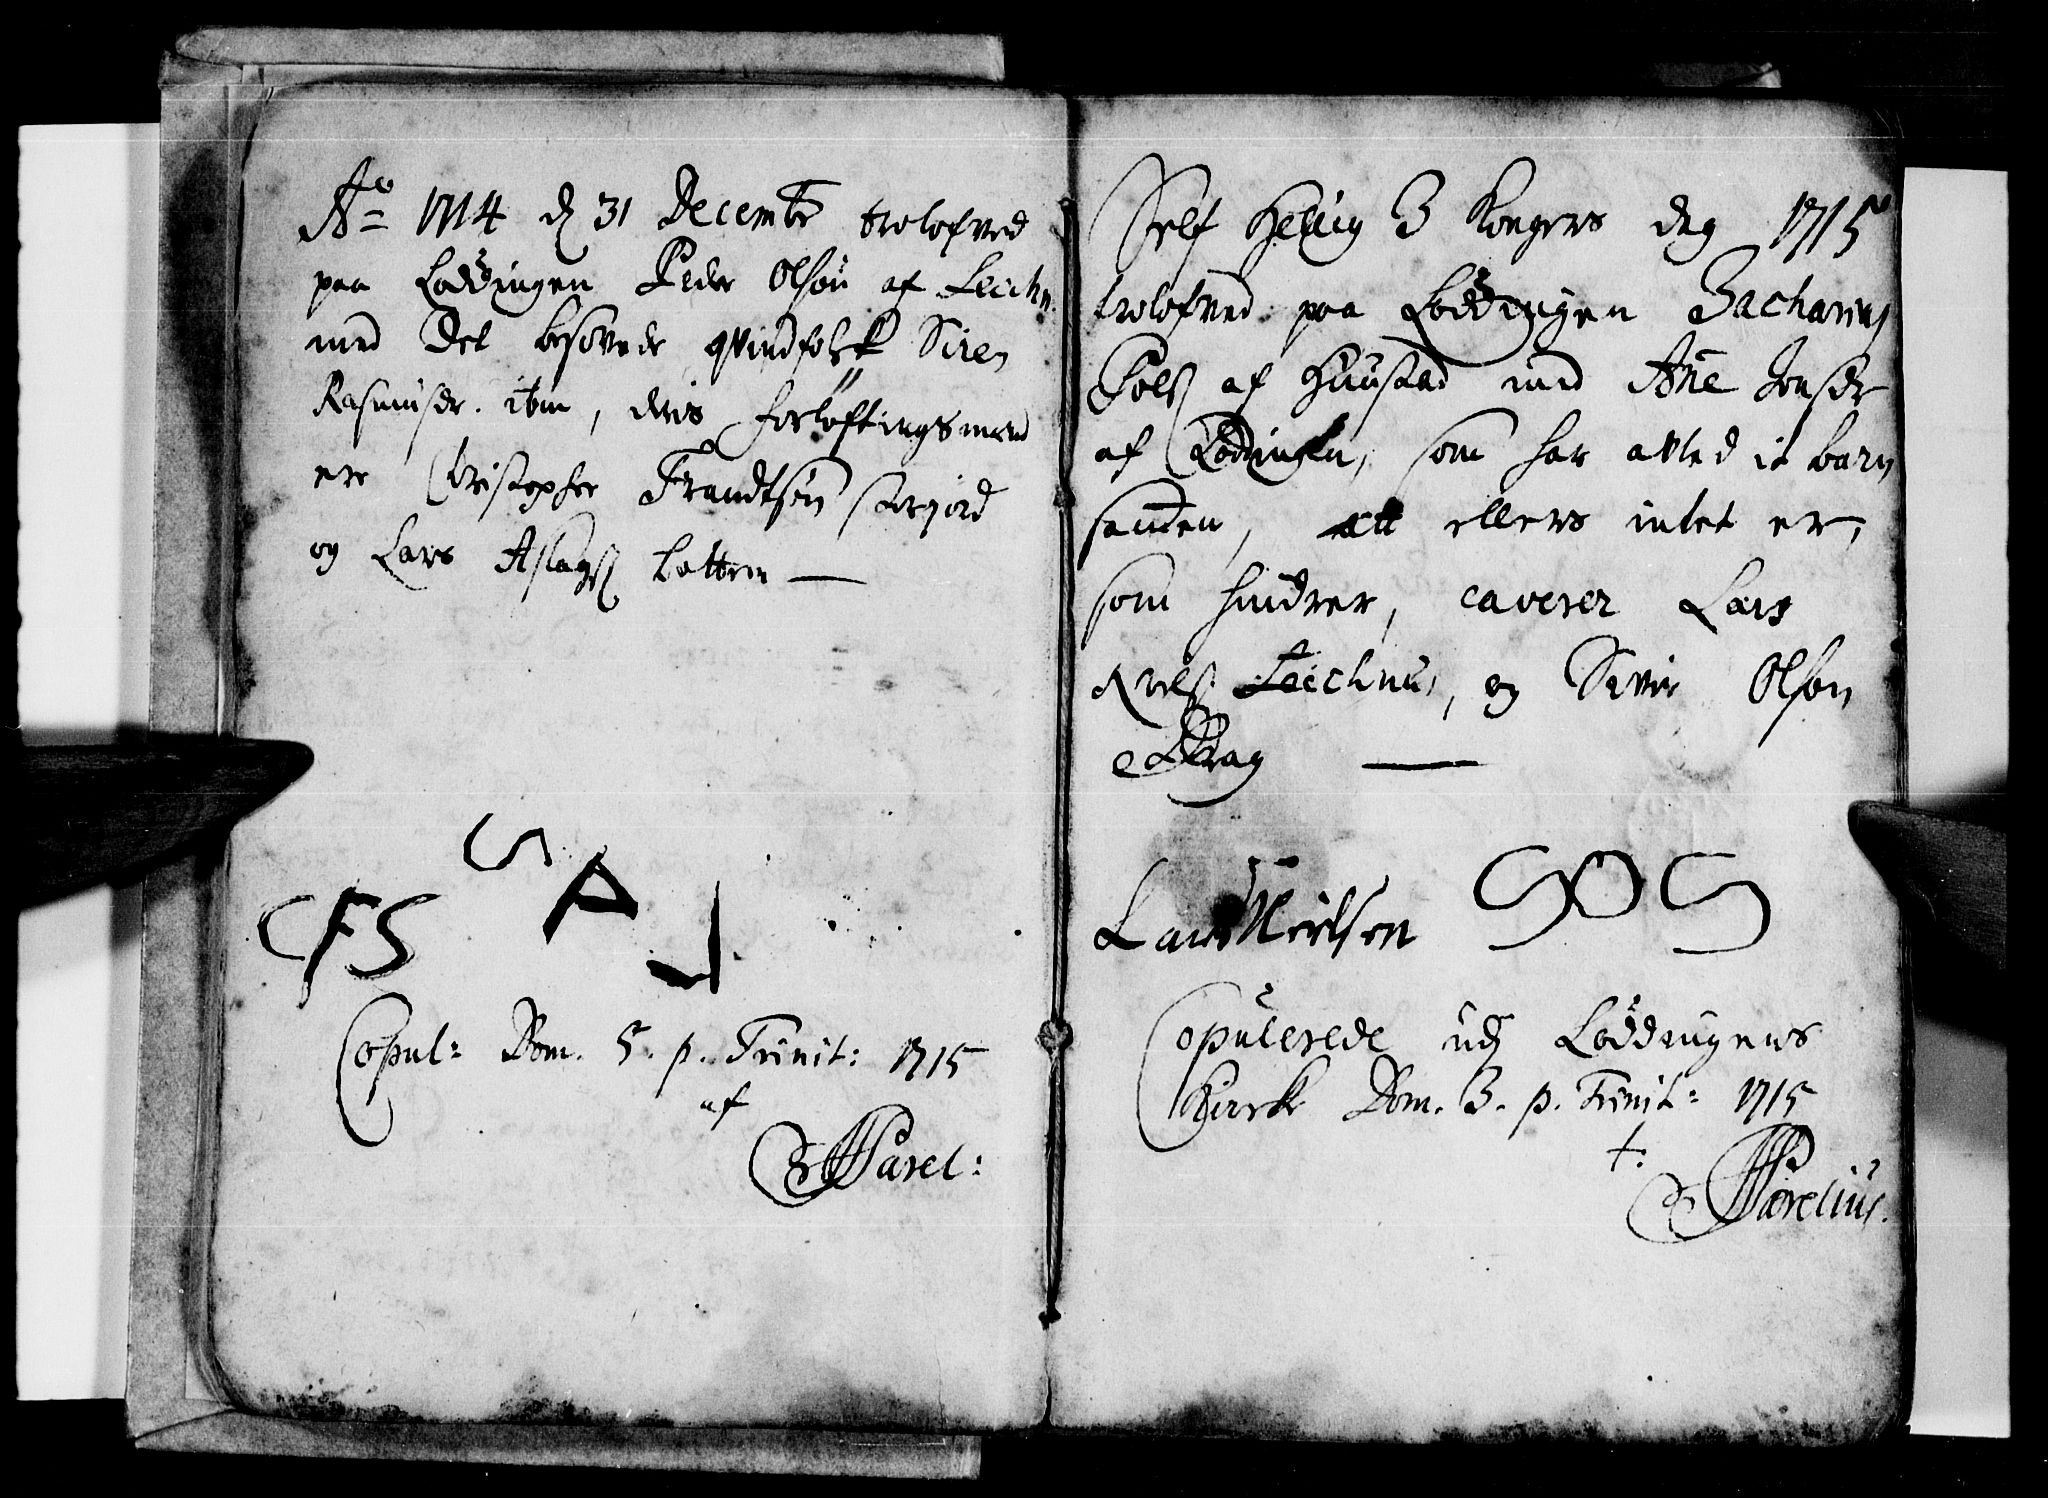 Aō 1714 d 31 Decembr trolofved
paa Lødingen Peder Olsön af
med Det besovede qvindfolck Siren
Rasmusdr. ibm, deris forlöftingsmend
ere Christopher Frandtsön Storjord
og Lars Aslags Hottren —
S
CFS A
L
Copul: Dom. 5. p. Trinit: 1715
af
Parel:
Self Hellig 3 Kongers dag 1715
trolofved paa Lödingen Zacharius
Pols af Huustad med Ane Jonsdr
af Lödingen, som har afled it barn
samden, att ellers intet er,
som hindrer, caverer Lars
Niels, og Siver Olsön
Lars Nielsen SOS
Copulerede udj Lödingens
Kircke Dom. 3. p. Trinit: 1715
t:
Parelius.